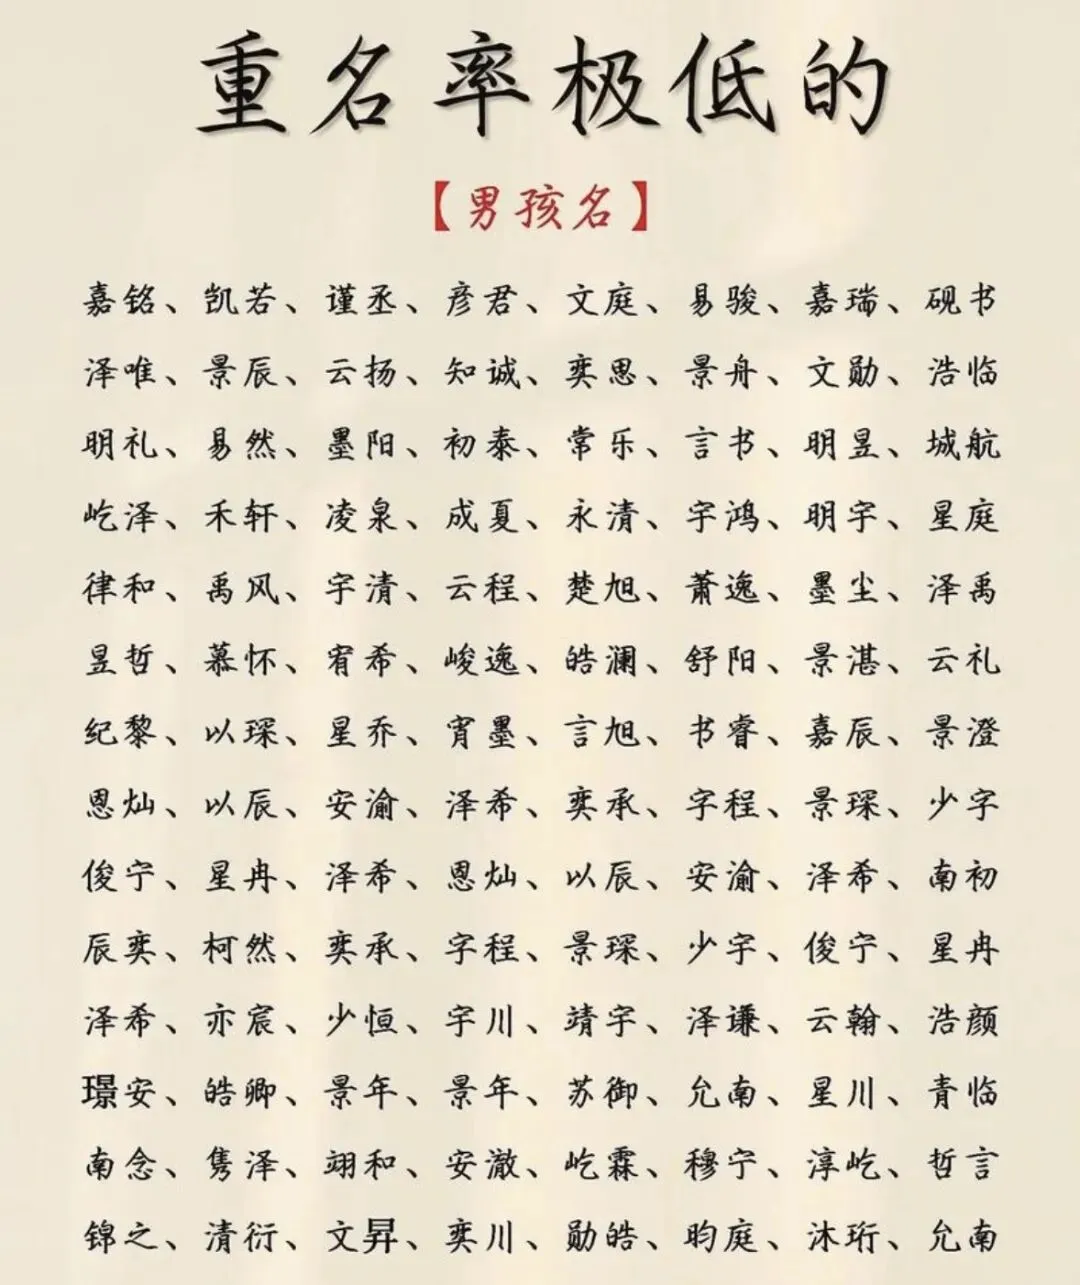 重名率极低的
【男孩名】
嘉铭、凯若、谨丞、彦君、文庭、易骏、嘉瑞、砚书
泽唯、景辰、云扬、知诚、奕思、景舟、文勋、浩临
明礼、易然、墨阳、初泰、常乐、言书、明昱、城航
屹泽、禾轩、凌泉、成夏、永清、宇鸿、明宇、星庭
律和、禹风、宇清、云程、楚旭、萧逸、墨尘、泽禹
昱哲、慕怀、宥希、峻逸、皓澜、舒阳、景湛、云礼
纪黎、以琛、星乔、宵墨、言旭、书睿、嘉辰、景澄
恩灿、以辰、安渝、泽希、奕承、字程、景琛、少字
俊宁、星冉、泽希、恩灿、以辰、安渝、泽希、南初
辰奕、柯然、奕承、字程、景琛、少宇、俊宁、星冉
泽希、亦宸、少恒、宇川、靖宇、泽谦、云翰、浩颜
璟安、皓卿、景年、景年、苏御、允南、星川、青临
南念、隽泽、翊和、安澈、屹霖、穆宁、淳屹、哲言
锦之、清衍、文昇、奕川、勋皓、昀庭、沐珩、允南